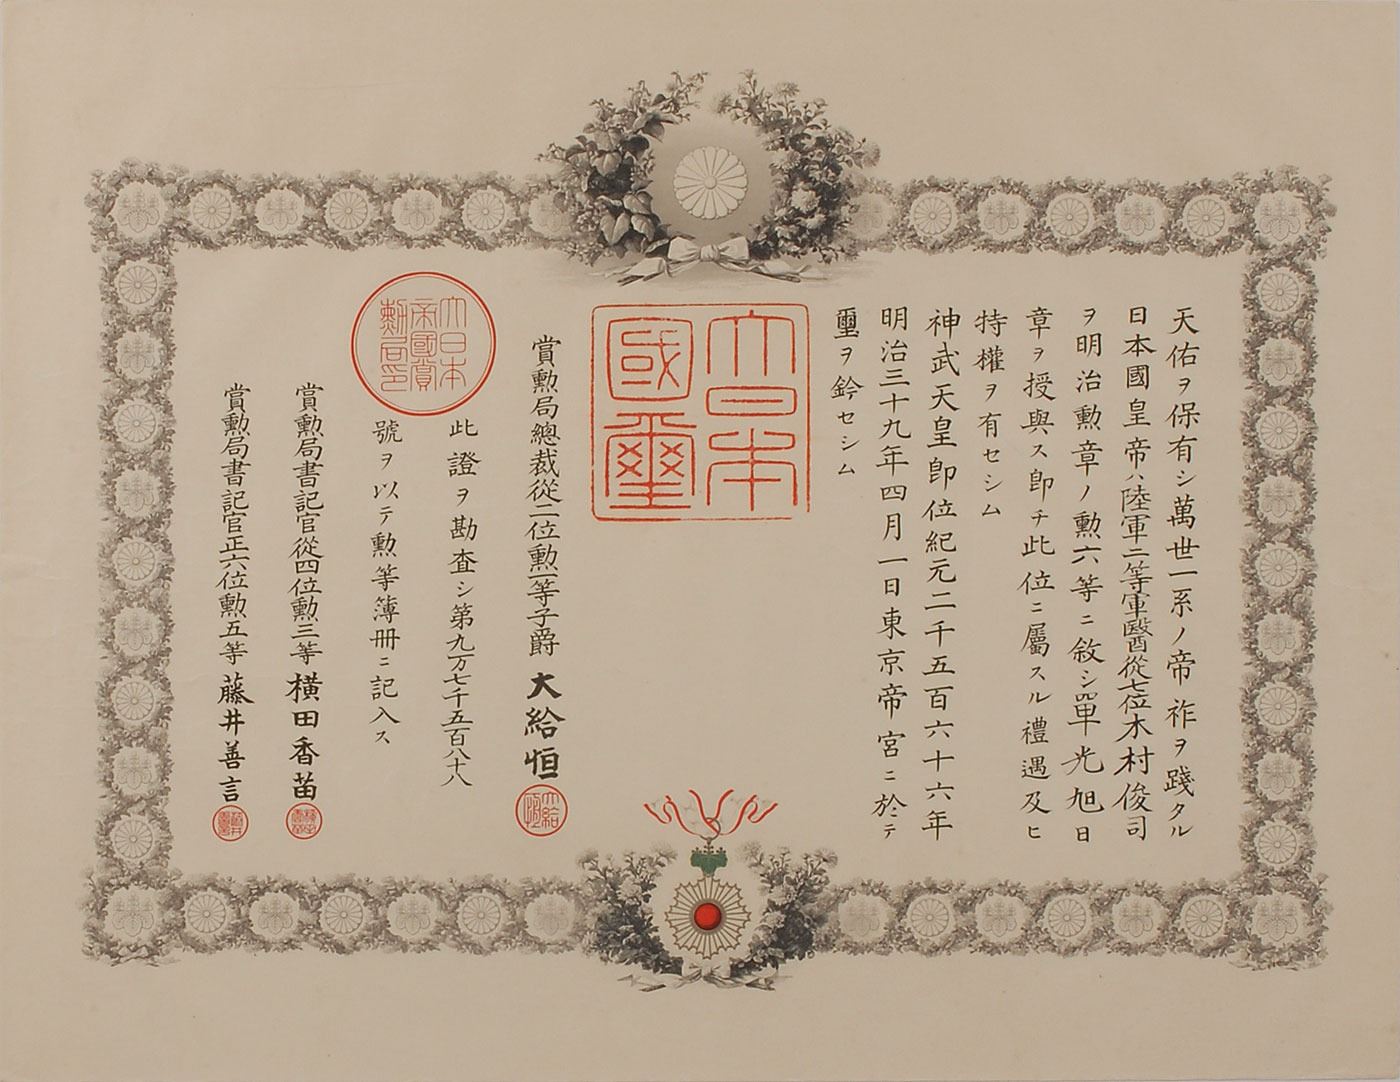 天佑ヲ保有シ萬世一系ノ帝祚ヲ踐タル
日本國皇帝ハ陸軍二等軍醫從七位木村俊司
ヲ明治勲章ノ勲六等ニ敘シ單光旭日
章ヲ授與ス即チ此位ニ屬スル禮遇及ヒ
特權ヲ有セシム
神武天皇即位紀元二千五百六十六年
明治三十九年四月一日東京帝宮ニ於テ
璽ヲ鈐セシム
大日本
國璽
賞勲局總裁從二位勲一等子爵 大給恒
大給恒
此證ヲ勘査シ第九万七千五百八十八
號ヲ以テ勲等簿冊ニ記入ス
大日本
帝國賞
勲局印
賞勲局書記官從四位勲三等 横田香苗
賞勲局書記官正六位勲五等 藤井善言